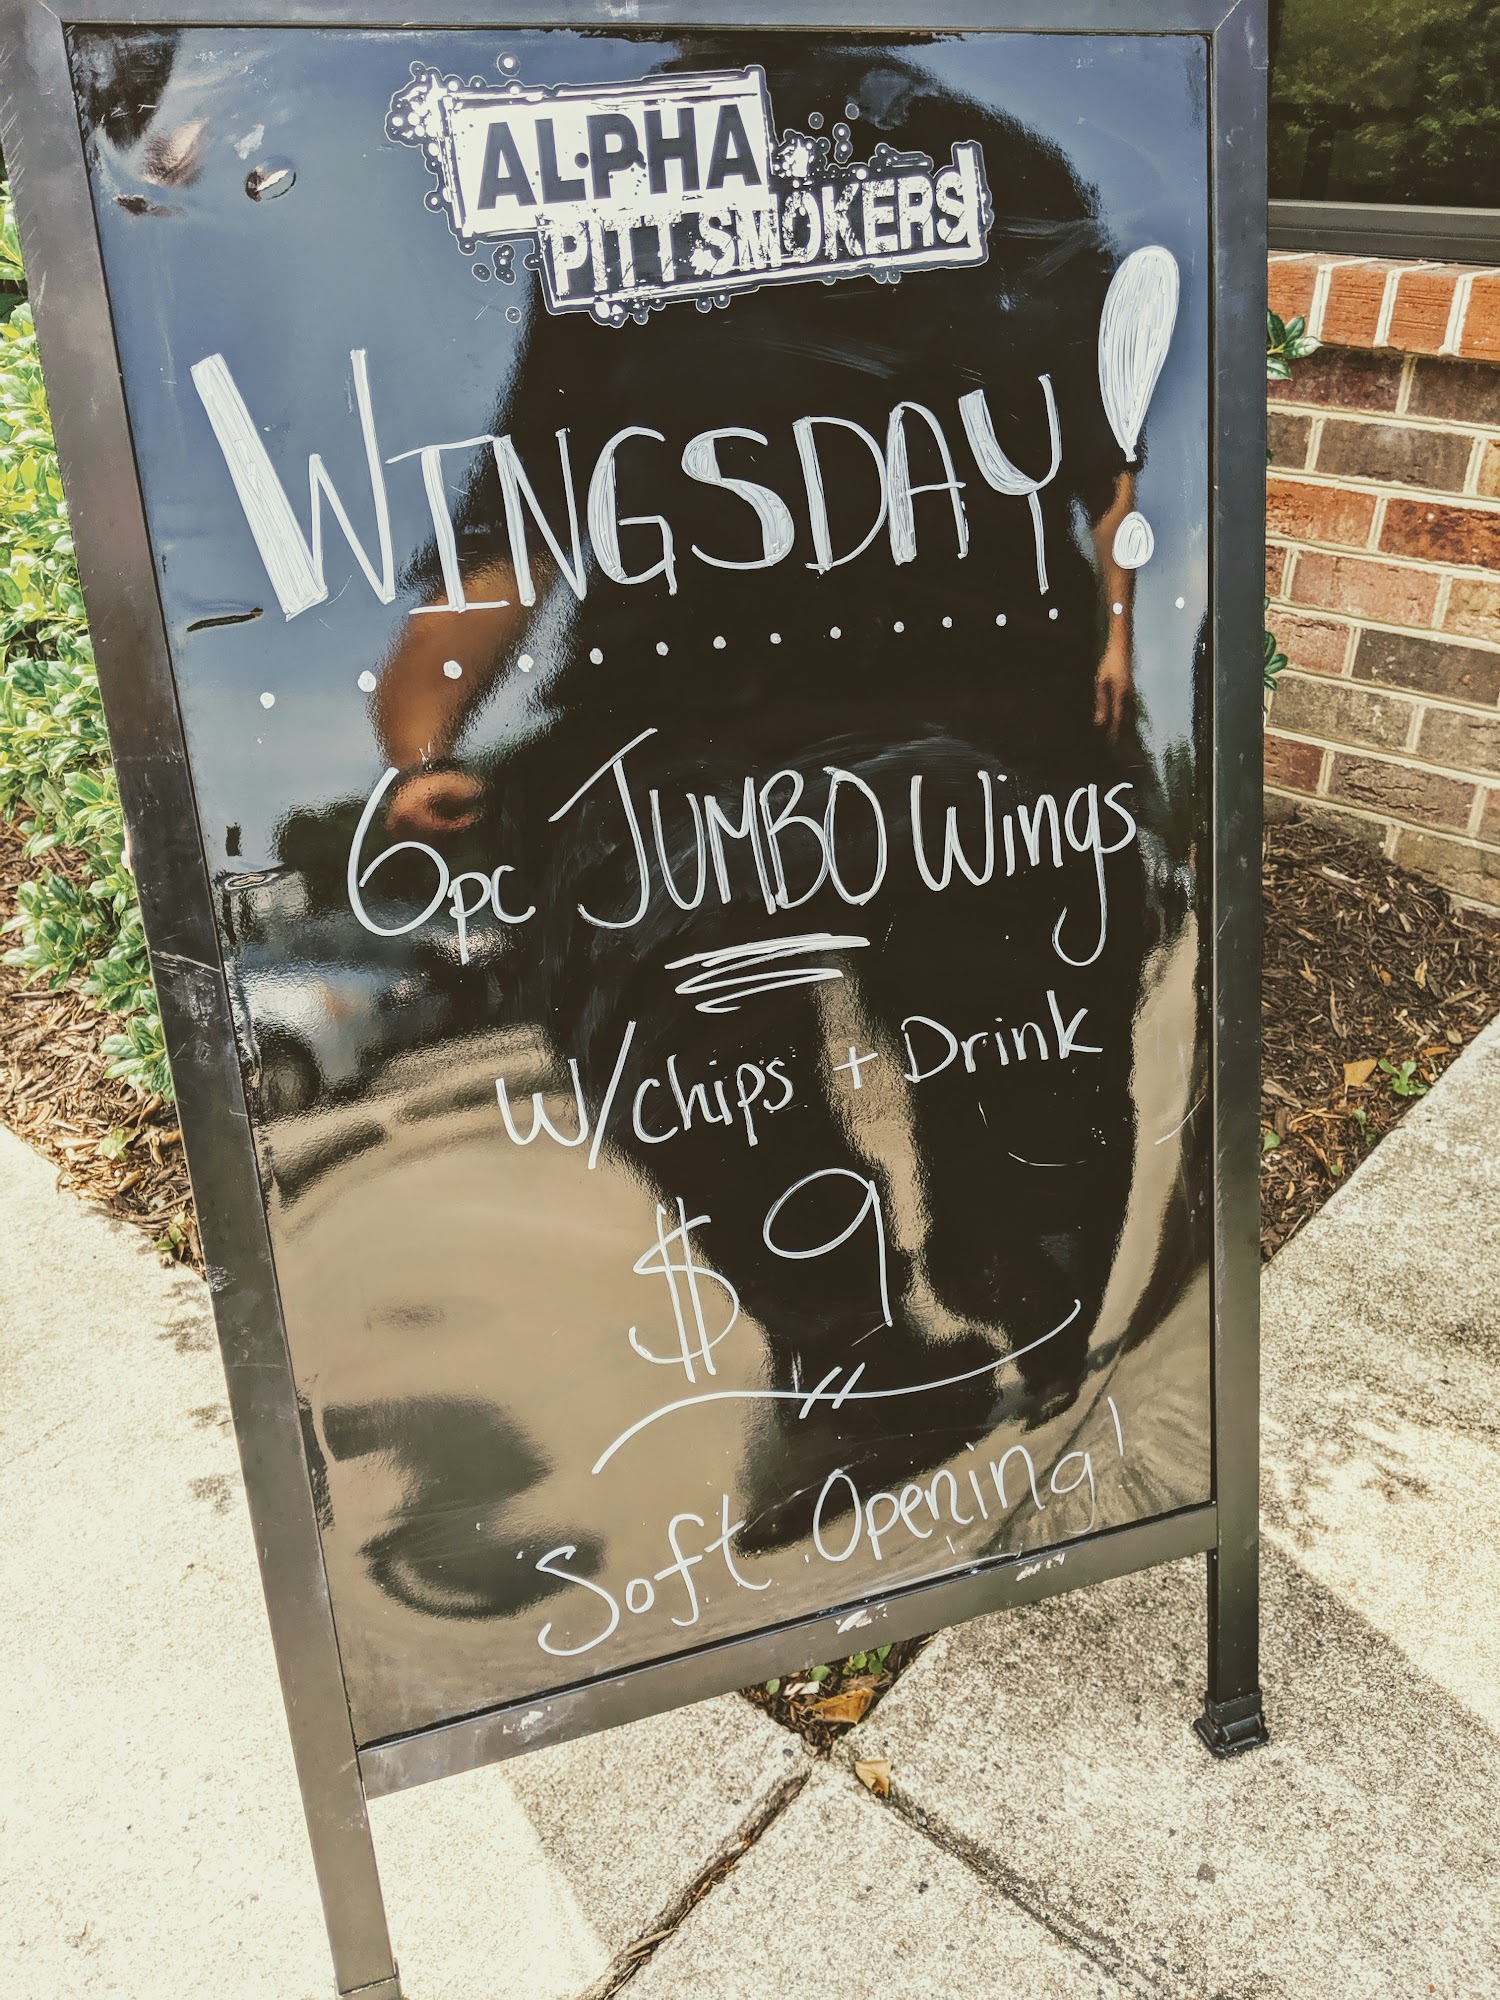 ALPHA
PITT SMOKERS
WINGSDAY!
6pc JUMBO Wings
W/chips + Drink
$9
Soft Opening!